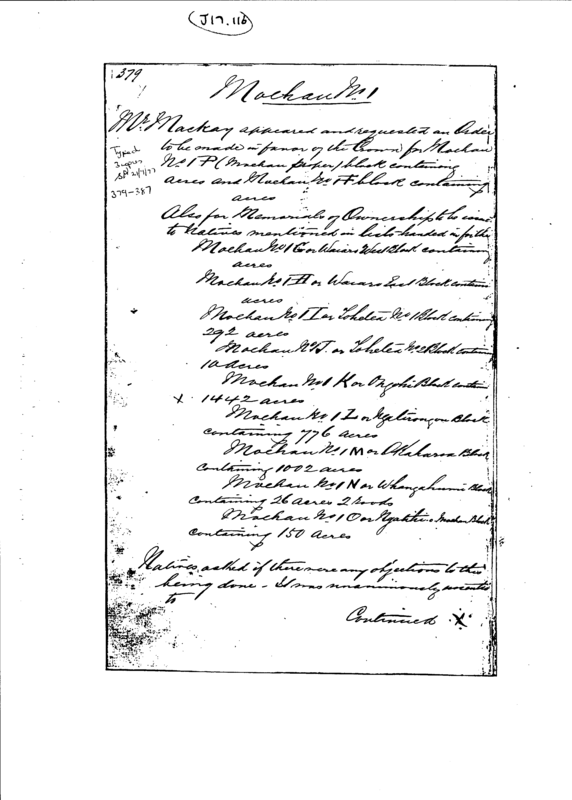 J17.116
379
Moehau No 1
Mr Mackay appeared and requested an Order
to be made in favor of the Crown for Moehau
No 1 P (Moehau proper) block containing
acres and Moehau No 1 F block containing
acres
Typed
3 copies
21/7/77
379-387
Also for Memorials of Ownership to be issued
to Natives mentioned in lists handed in for the
Moehau No 1 G or Waiaro West Block containing
acres
Moehau No 1 H or Waiaro East Block containing
acres
Moehau No 1 I or Tohetea No 1 Block containing
292 acres
Moehau No 1 J or Tohetea No 2 Block containing
10 acres
Moehau No 1 K or Block containing
x 1442 acres
Moehau No 1 L or Block
containing 776 acres
Moehau No 1 M or Akaharoa Block
containing 1002 acres
Moehau No 1 N or Block
containing 26 acres 2 roods
Moehau No 1 O or Moehau Block
containing 150 acres
x
Natives asked if there were any objections to this
being done - It was unanimously assented
to
Continued x